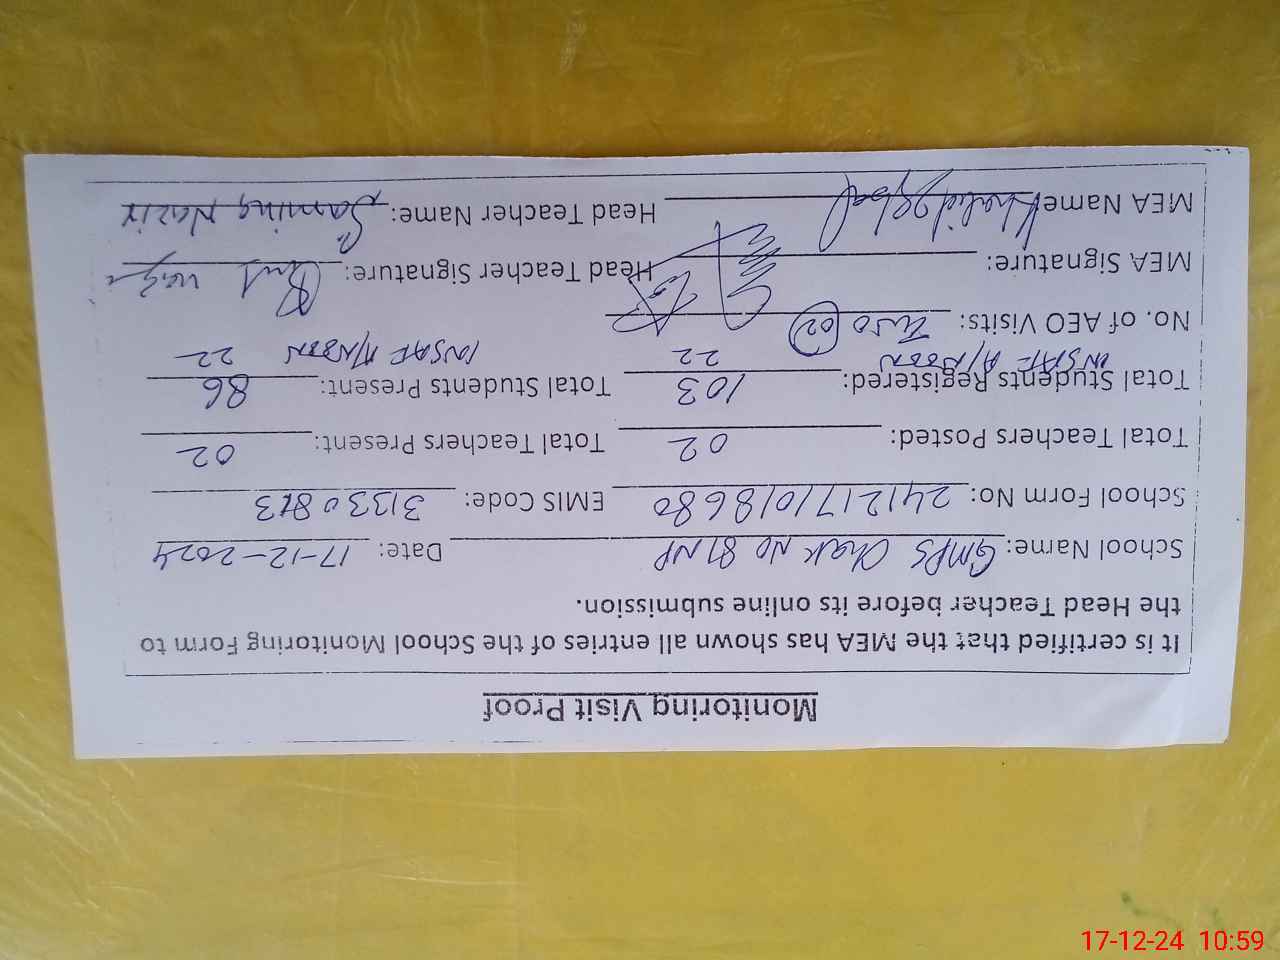 Monitoring Visit Proof
It is certified that the MEA has shown all entries of the School Monitoring Form to
the Head Teacher before its online submission.
School Name: GMPS Chak No 81 NP Date: 17-12-2024
School Form No: 241217/018680 EMIS Code: 31330813
Total Teachers Posted: 02 Total Teachers Present: 02
Total Students Registered: 103 Total Students Present: 86
INSAF A/NOON 22 INSAF A/NOON 22
No. of AEO Visits: Two 02
MEA Signature: Head Teacher Signature:
MEA Name Khalid Iqbal Head Teacher Name: Nazir
17-12-24 10:59